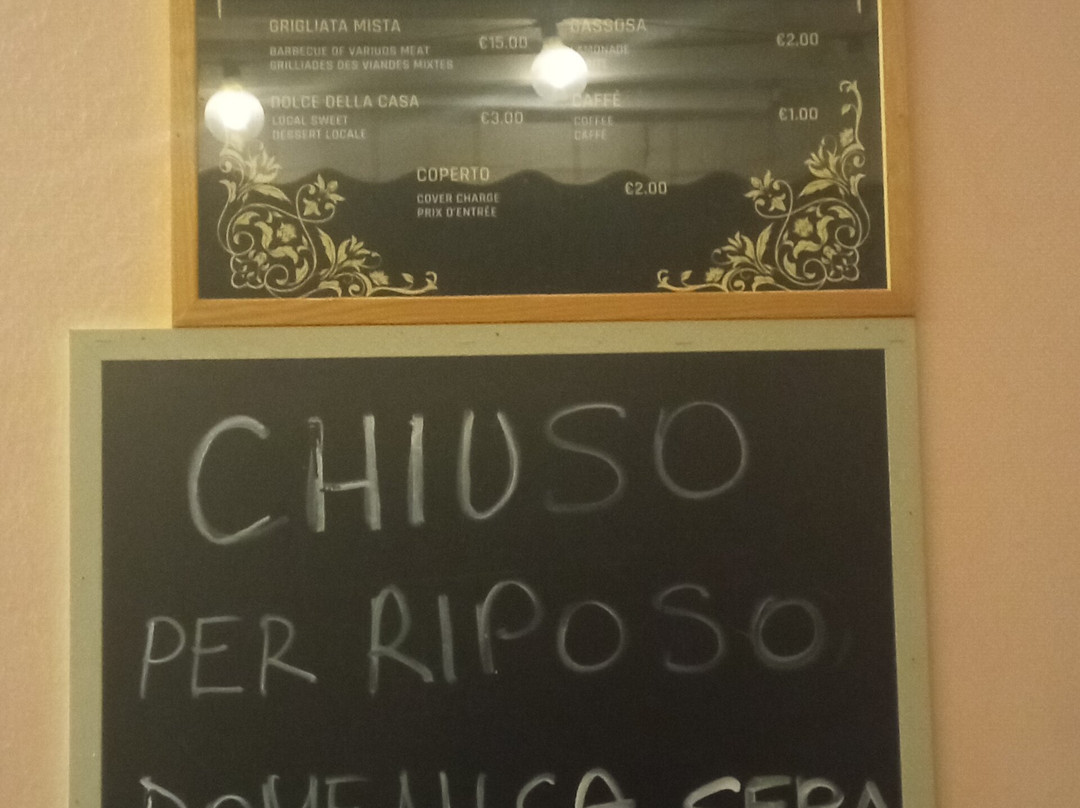 GRIGLIATA MISTA
BARBECUE OF VARIUOS MEAT
GRILLIADES DES VIANDES MIXTES
€15.00
DOLCE DELLA CASA
LOCAL SWEET
DESSERT LOCALE
€3.00
GASSOSA
LEMONADE
€2.00
CAFFÉ
COFFEE
CAFFÉ
€1.00
COPERTO
COVER CHARGE
PRIX D'ENTRÉE
€2.00
CHIUSO
PER RIPOSO
DOMENICA SERA